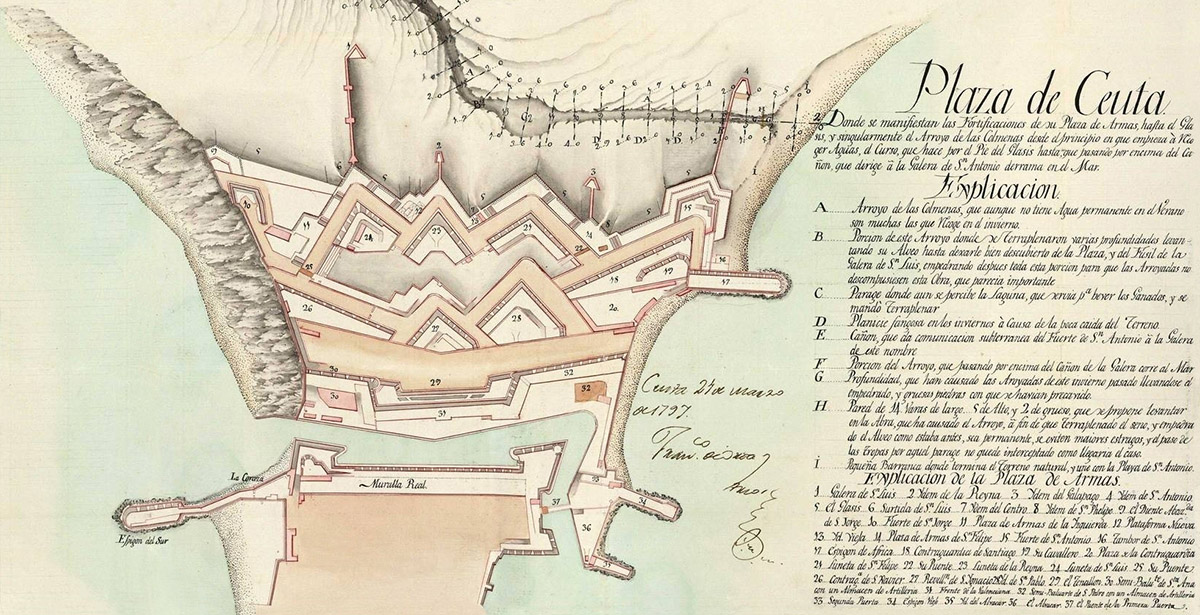 Plaza de Ceuta.
Donde se manifiestan las Fortificaciones de su Plaza de Armas, hasta el Gla-
sis, y singularmente el Arroyo de las Colmenas desde el principio en que empieza à reco-
ger Aguas, el Curso, que hace por el Pie del Glasis hasta que pasando por encima del Ca-
ñon, que dirige à la Galera de Sⁿ Antonio derrama en el Mar.
Explicacion.
A Arroyo de las Colmenas, que aunque no tiene Agua permanente en el Verano
son muchas las que recoge en el invierno.
B Porcion de este Arroyo donde se Terraplenaron varias profundidades levan-
tando su Alveo hasta dexarle bien descubierto de la Plaza, y del Fusil de la
Galera de Sⁿ Luis, empedrando despues toda esta porcion para que las Arroyadas no
descompusiesen esta Obra, que parecia importante
C Parage donde aun se percibe la Laguna, que servia pª bever los Ganados, y se
mandó Terraplenar
D Planicie fangosa en los inviernos à Causa de la poca caida del Terreno.
E Cañon, que da comunicacion subterranea del Fuerte de Sⁿ Antonio à la Galera
de este nombre
F Porcion del Arroyo, que pasando por encima del Cañon de la Galera corre al Mar
G Profundidad, que han causado las Arroyadas de este invierno pasado llevandose el
empedrado, y gruesas piedras con que se havian precavido.
H Pared de 14 Varas de largo, 5 de Alto, y 2 de grueso, que se propone levantar
en la Abra, que ha causado el Arroyo, à fin de que terraplenado el seno, y empedra-
do el Alveo como estaba antes, sea permanente, se eviten maiores estragos, y el paso de
las Tropas por aquel parage no quede interceptado como llegaria el caso.
I Pequeña Barranca donde termina el Terreno natural, y une con la Playa de Sⁿ Antonio.
Explicacion de la Plaza de Armas.
1 Galera de Sⁿ Luis 2 Idem de la Reyna 3 Idem del Galapago 4 Idem de Sⁿ Antonio
5 El Glasis 6 Surtida de Sⁿ Luis 7 Idem del Centro 8 Idem de Sⁿ Phelipe 9 El Diente
de S Jorge 10 Fuerte de Sⁿ Jorge 11 Plaza de Armas de la Higuera 12 Plataforma Nueva
13 Id. Vieja 14 Plaza de Armas de Sⁿ Felipe 15 Fuerte de Sⁿ Antonio 16 Tambor de Sⁿ Antonio
17 Espigon de Africa 18 Contraguardia de Santiago 19 Su Cavallero 20 Plaza de la Contraguardia
21 Luneta de Sⁿ Felipe 22 Su Puente 23 Luneta de la Reyna 24 Luneta de Sⁿ Luis 25 Su Puente
26 Contragª de S Xavier 27 Revellⁿ de Sⁿ Ignacio 28 Id. de Sⁿ Pablo 29 El Tenallon 30 Semi-Balᵗᵉ de Sᵗᵃ Ana
con un Almacen de Artilleria 31 Frente de la Valenciana 32 Semi-Baluarte de Sⁿ Pedro con un Almacen de Artilleria
33 Segunda Puerta 34 Espigon 35 Id. del Albacar 36 El Albacar 37 El Puente de la Primera Puerta
Ceuta 27 de Marzo
de 1797.
La Corona
Muralla Real.
Espigon del Sur